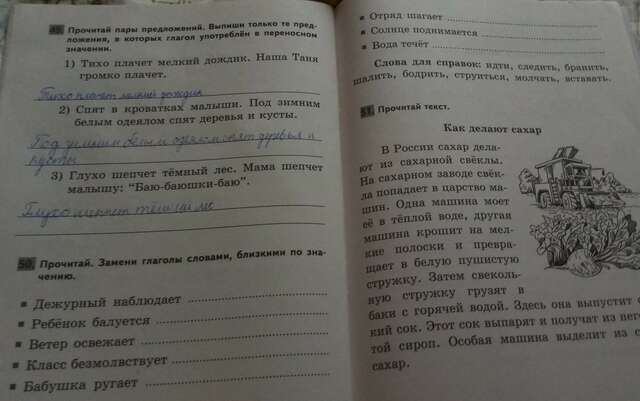 49. Прочитай пары предложений. Выпиши только те пред-
ложения, в которых глагол употреблён в переносном
значении.
1) Тихо плачет мелкий дождик. Наша Таня
громко плачет.
Тихо плачет мелкий дождик
2) Спят в кроватках малыши. Под зимним
белым одеялом спят деревья и кусты.
Под зимним белым одеялом спят деревья и
кусты
3) Глухо шепчет тёмный лес. Мама шепчет
малышу: “Баю-баюшки-баю”.
Глухо шепчет тёмный ле
50. Прочитай. Замени глаголы словами, близкими по зна-
чению.
Дежурный наблюдает
Ребёнок балуется
Ветер освежает
Класс безмолвствует
Бабушка ругает
Отряд шагает
Солнце поднимается
Вода течёт
Слова для справок: идти, следить, бранить,
шалить, бодрить, струиться, молчать, вставать.
51. Прочитай текст.
Как делают сахар
В России сахар дела-
ют из сахарной свёклы.
На сахарном заводе свёк-
ла попадает в царство ма-
шин. Одна машина моет
её в тёплой воде, другая
машина крошит на мел-
кие полоски и превра-
щает в белую пушистую
стружку. Затем свеколь-
ную стружку грузят в
баки с горячей водой. Здесь она выпустит с
кий сок. Этот сок выпарят и получат из него
той сироп. Особая машина выделит из с
сахар.